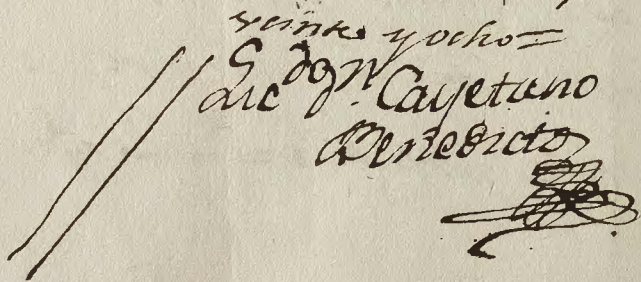 veinte y ocho=
Licdo Dn. Cayetano
Benedicto